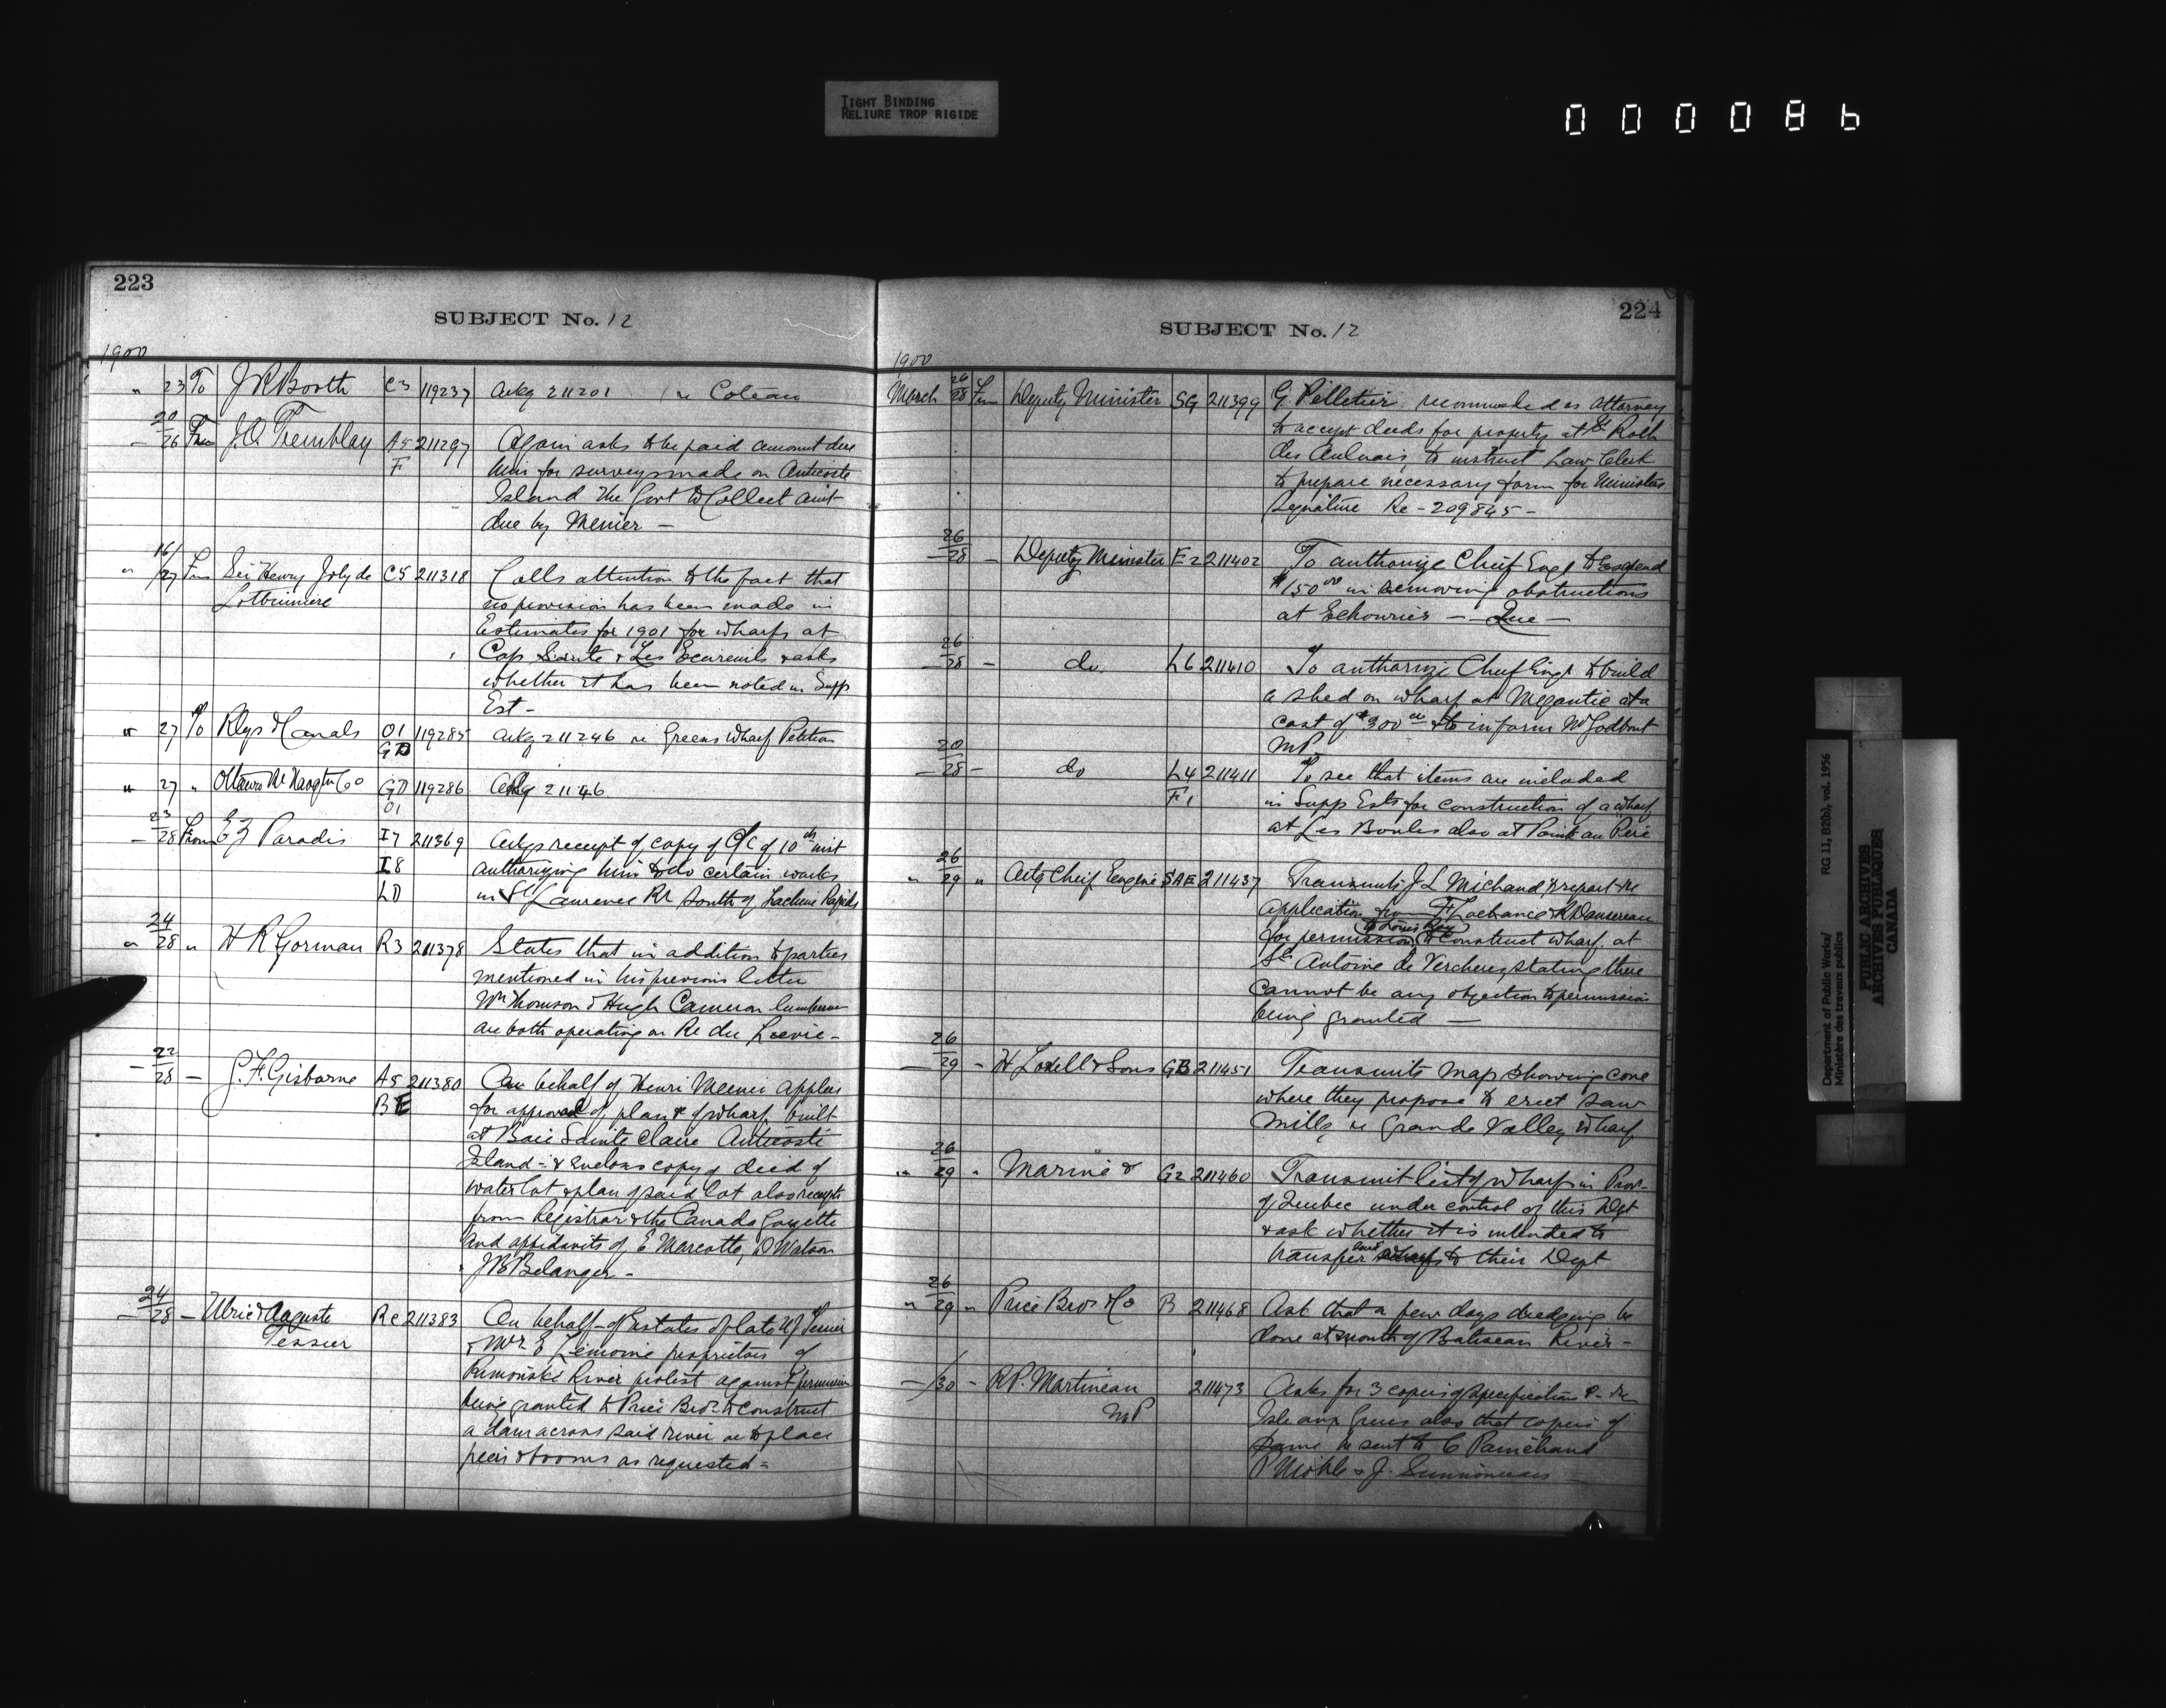 TIGHT BINDING
RELIURE TROP RIGIDE
000086
223
SUBJECT No. 12
1900
" 23 To J R Booth C3 119237 Ackg 211201 re Coteau
20/26 From J.O. Tremblay A5 211297 Again asks to be paid amount due
F him for surveys made on Anticosti
Island the Govt to Collect amt
due by Menier —
" 16/27 From Sir Henry Joly de C5 211318 Calls attention to the fact that
Lotbiniere no provision has been made in
Estimates for 1901 for wharfs at
Cap Sante & Les Ecureuils & asks
whether it has been noted in Supp
Est -
" 27 To Rlys & Canals O1 119285 Ackg 211246 re Greens Wharf Petition
GD
" 27 " Ottawa Rr Navgtn Co GD 119286 Ackg 21146
O1
23/28 From E Z Paradis I7 211369 Ackgs receipt of copy of O/C of 10th inst
I8 authorizing him to do certain works
LD in St Laurence Rr South of Lachine Rapids
" 24/28 " H R Gorman R3 211378 States that in addition to parties
mentioned in his previous letter
Wm Thomson & Hugh Cameron lumbermen
are both operating on Rr du Lievre -
22/28 — G. F. Gisborne A5 211380 On behalf of Henri Menier applies
BE for approval of plan & of wharf built
at Baie Sainte Claire Anticosti
Island - & encloses copy of deed of
water lot & plan of said lot also receipts
from Registrar & the Canada Gazette
and affidavits of E Marcotte, D Watson
J B Belanger -
24/28 — Ulric & Auguste Re 211383 On behalf of Estates of late U J Tessier
Tessier & Mr E Lemoine proprietors of
Rimouski River protest against permission
being granted to Price Bros to construct
a dam across said river or to place
piers & booms as requested =
224
SUBJECT No. 12
1900
March 26/28 From Deputy Minister SG 211399 G. Pelletier recommended as attorney
to accept deeds for property at St Roch
des Aulnais, to instruct Law Clerk
to prepare necessary form for Ministers
signature Re - 209845 -
26/28 — Deputy Minister E2 211402 To authorize Chief Engr to expend
$150 00 in removing obstructions
at Echouries — Que —
26/28 — do. L6 211410 To authorize Chief Engr to build
a shed on wharf at Megantic at a
cost of $300 00 & to inform Mr Godbout
MP
20/28 — do L4 211411 To see that items are included
F1 in Supp Ests for construction of a wharf
at Les Boules also at Point au Pere
" 26/29 " Actg Chief Engine SAE 211437 Transmits J L Michaud's report re
application from F Lachance & R Dansereau
to Louis Roy
for permission to construct wharf at
St Antoine de Vercheres, stating there
cannot be any objection to permission
being granted —
26/29 - H Lovell & Sons GB 211451 Transmits map showing cove
where they propose to erect saw
mills, re Grande Valley wharf
" 26/29 " Marine & G2 211460 Transmit list of wharfs in Prov-
of Quebec under control of this Dept
& ask whether it is intended to
transfer said wharfs to their Dept
" 26/29 " Price Bros & Co B 211468 Ask that a few days dredging be
done at mouth of Batiscan River -
— /30 - R P. Martineau 211473 Asks for 3 copies of specification re
MP Isle aux Grues also that copies of
same be sent to C Painchaud
Department of Public Works/ RG 11, B2(b), vol. 1956
Ministère des travaux publics
PUBLIC ARCHIVES
ARCHIVES PUBLIQUES
CANADA